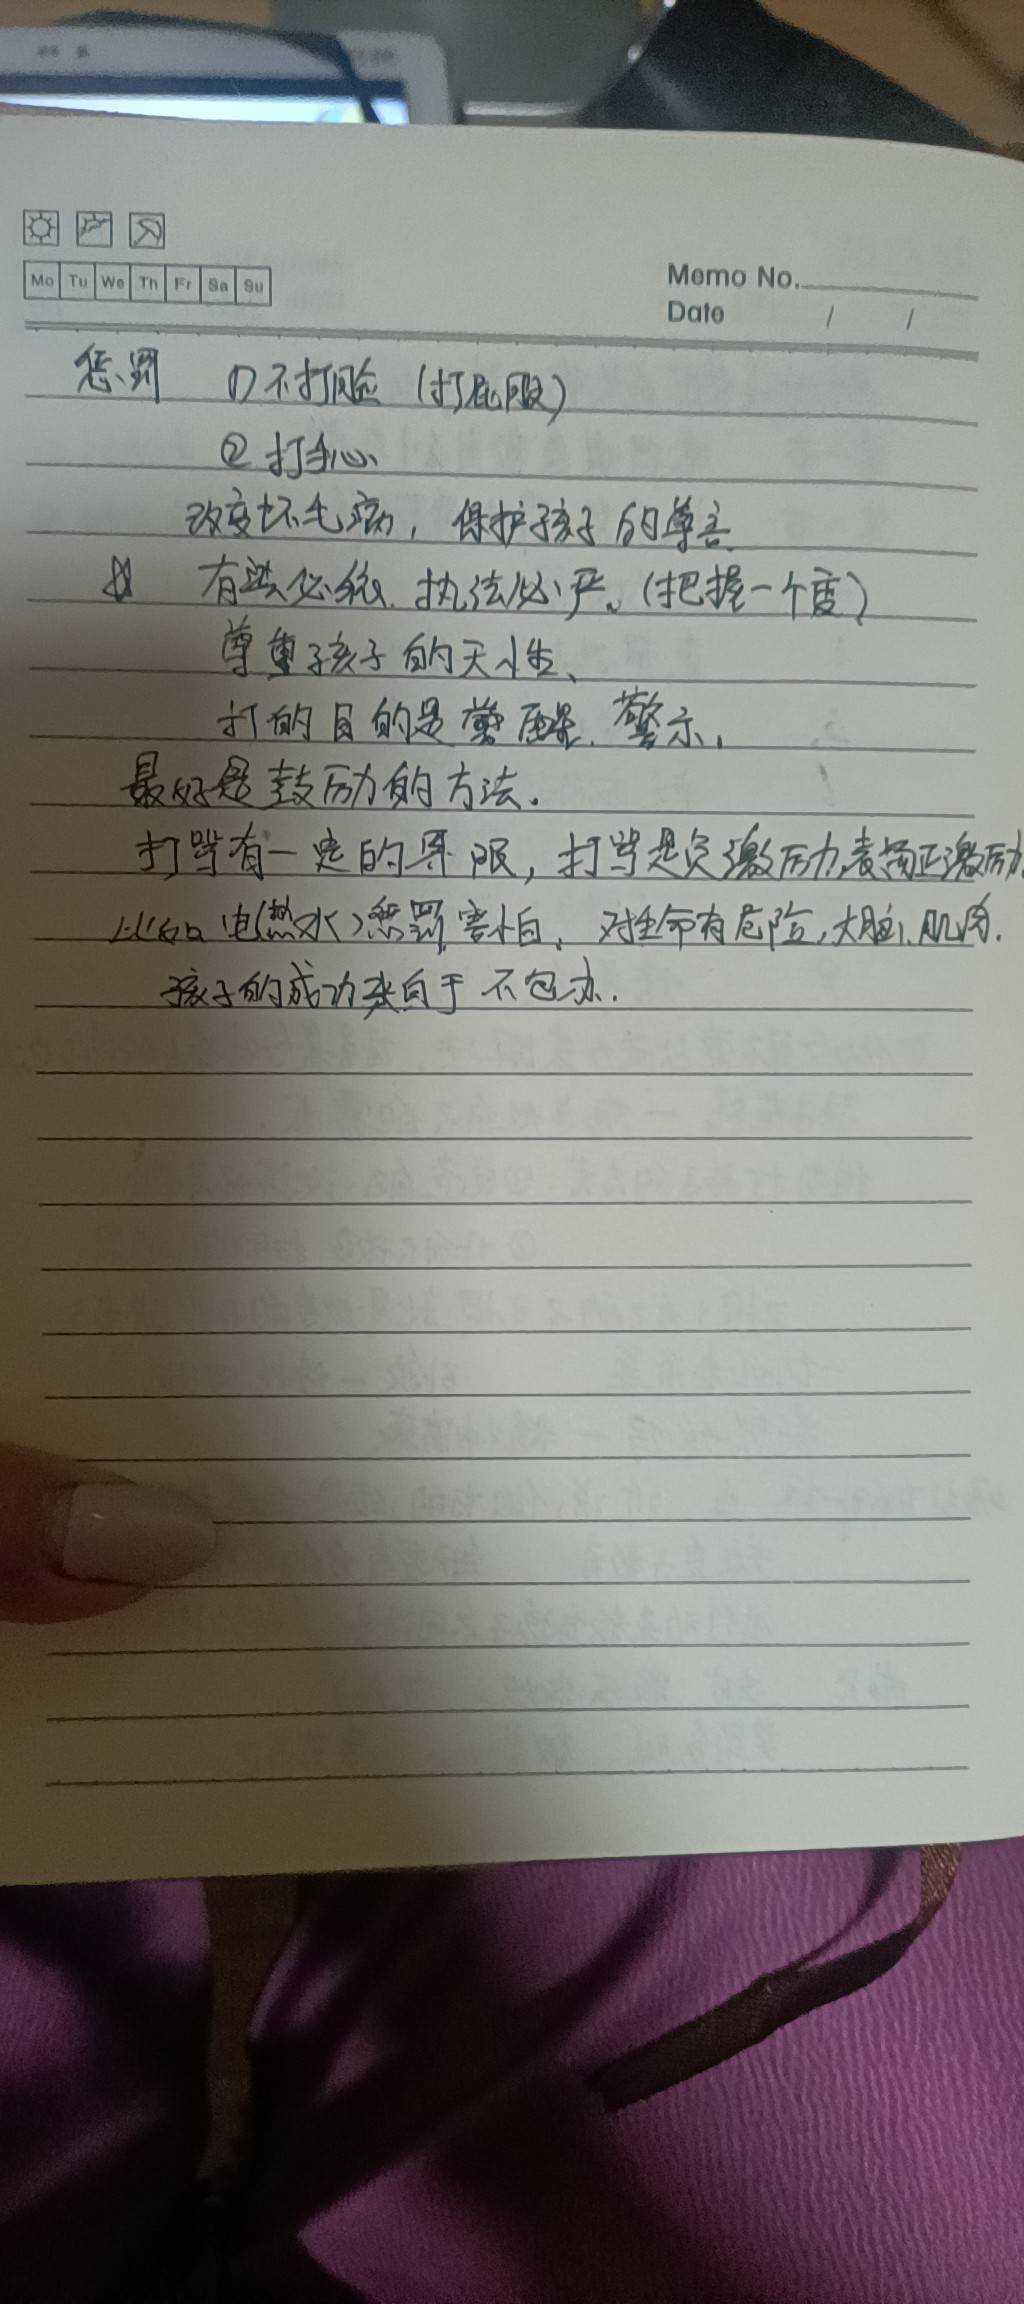 Mo Tu We Th Fr Sa Su
Memo No.
Date / /
惩罚 ①不打脸（打屁股）
②打手心
改变坏毛病，保护孩子的尊言
有法必依．执法必严。（把握一个度）
尊重孩子的天性、
打的目的是警醒．警示，
最好是鼓励的方法．
打骂有一定的界限，打骂是负激励，表扬正激励．
比如电（热水）惩罚，害怕、对生命有危险，大脑、肌肉．
孩子的成功来自于不包办．